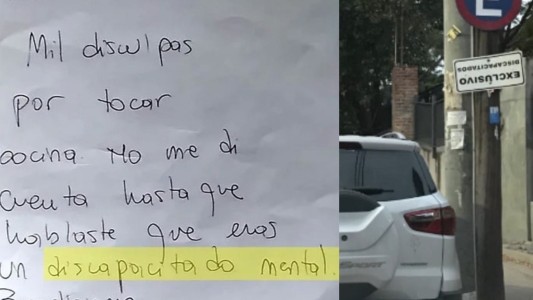 Mil disculpas
por tocar
bocina. No me di
cuenta hasta que
hablaste que eras
un discapacitado mental.
E
EXCLUSIVO
DISCAPACITADOS
SPORT